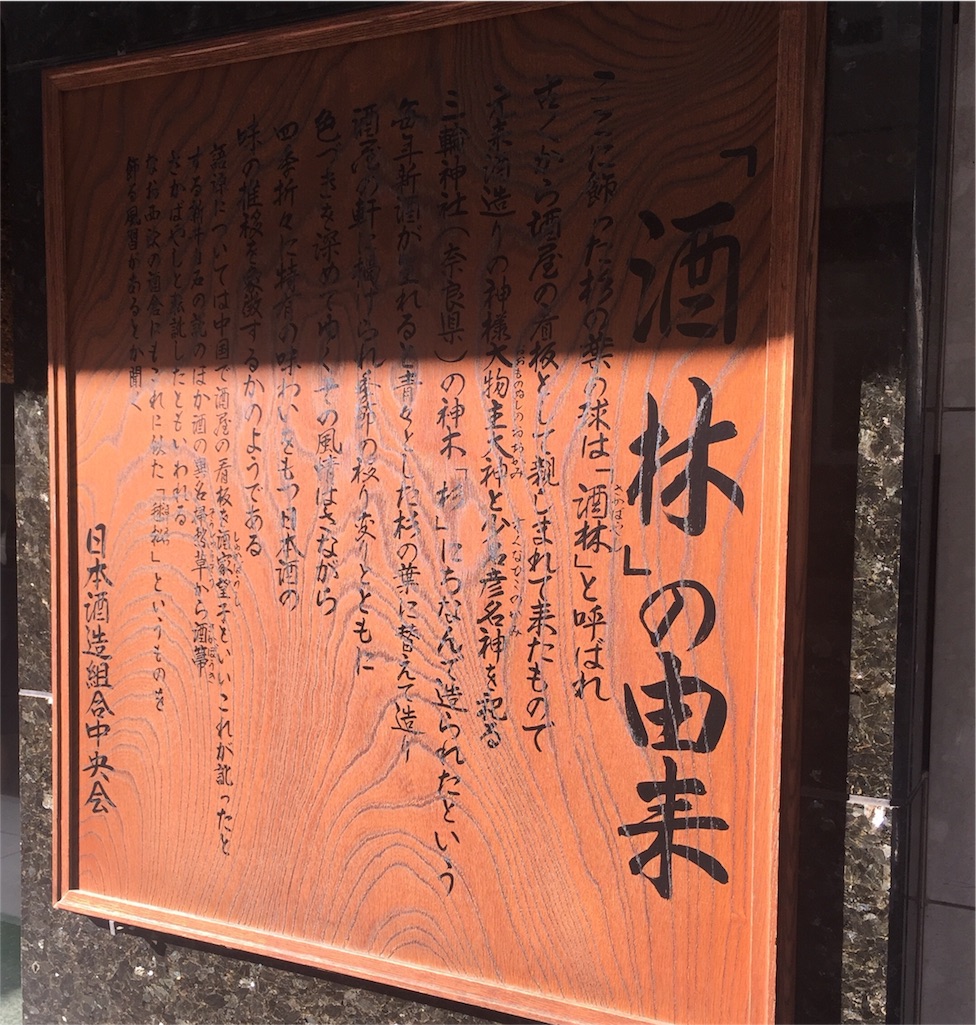 「酒林」の由来
ここに飾った杉の葉の球は「酒林」と呼ばれ
古くから酒屋の看板として親しまれて来たもので
元来酒造りの神様大物主大神と少名彦名神を祀る
三輪神社（奈良県）の神木「杉」にちなんで造られたという
毎年新酒が生れると青々とした杉の葉に替えて造り
酒屋の軒に掲げられ季節の移り変りとともに
色づきを深めてゆくその風情はさながら
四季折々に特有の味わいをもつ日本酒の
味の推移を象徴するかのようである
語源については中国で酒屋の看板を酒家望子といいこれが訛ったと
する新井白石の説のほか酒の異名掃愁帚から酒箒
さかばやしと転訛したともいわれる
なお西欧の酒倉にもこれに似た「」というものを
飾る風習があるとか聞く
日本酒造組合中央会